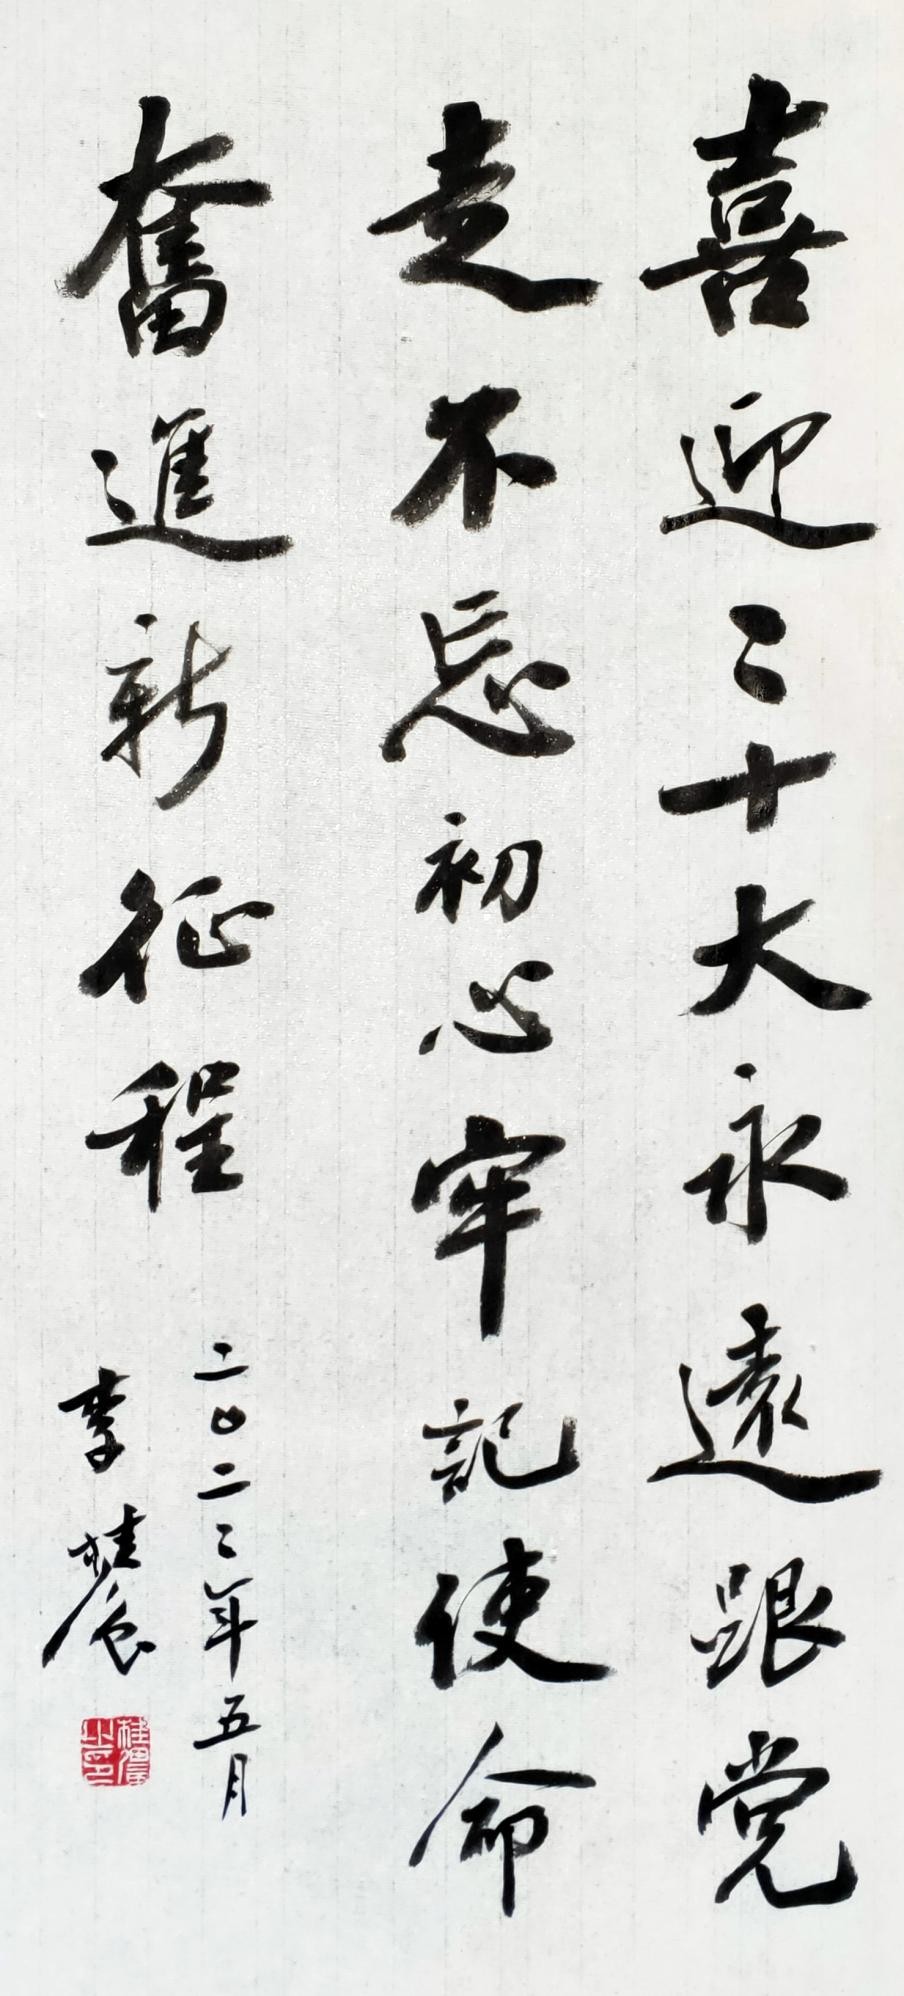 喜迎二十大永遠跟党
走不忘初心牢記使命
奮進新征程
二〇二二年五月
李桂